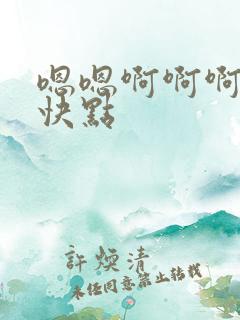 嗯嗯啊啊啊
快點
許煙清
未任同意禁止转载